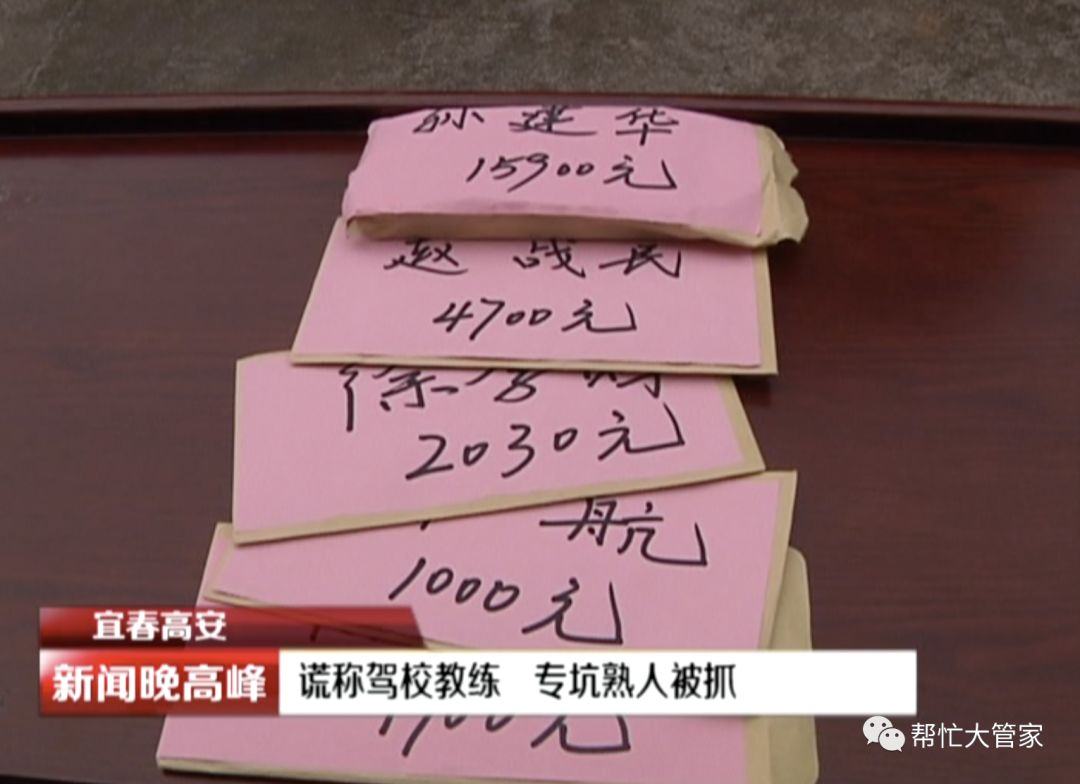 孙建华
15900元
赵战民
4700元
徐
2030元
航
1000元
宜春高安
新闻晚高峰
谎称驾校教练 专坑熟人被抓
00元
帮忙大管家